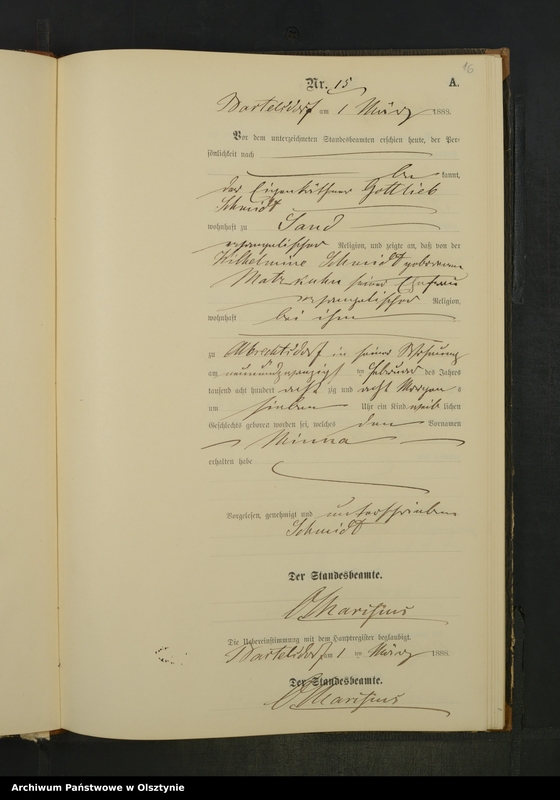 16
Nr. 15
A.
Bartelsdorf am 1 März 1888.
Vor dem unterzeichneten Standesbeamten erschien heute, der Per-
sönlichkeit nach
be kannt,
der Eigenkäthner Gottlieb
Schmidt
wohnhaft zu Sand
evangelischer Religion, und zeigte an, daß von der
Wilhelmine Schmidt geborenen
seiner Ehefrau
evangelischer Religion,
wohnhaft bei ihm
zu Albrechtsdorf in seiner Wohnung
am neunundzwanzigsten Februar des Jahres
tausend acht hundert achtzig und acht Morgens
um sieben Uhr ein Kind weiblichen
Geschlechts geboren worden sei, welches den Vornamen
Minna
erhalten habe
Vorgelesen, genehmigt und unterschrieben
Schmidt
Der Standesbeamte.
Die Uebereinstimmung mit dem Hauptregister beglaubigt.
Bartelsdorf am 1 ten März 1888.
Der Standesbeamte.
Archiwum Państwowe w Olsztynie